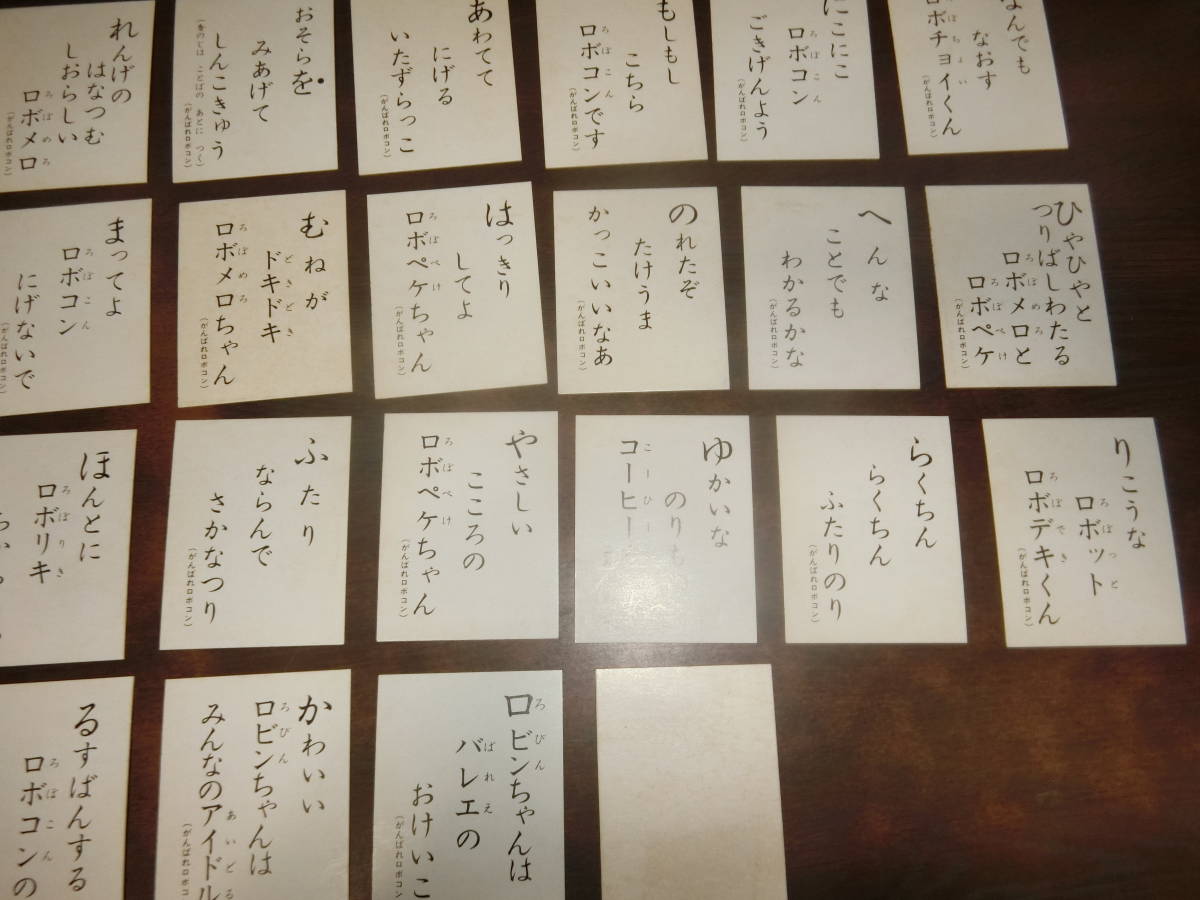 れんげの
はなつむ
しおらしい
ロボメロ
ろぼめろ
(がんばれロボコン)
おそらを
みあげて
しんこきゅう
(をのじは ことばの あとに つく)
(がんばれロボコン)
あわてて
にげる
いたずらっこ
(がんばれロボコン)
もしもし
こちら
ロボコンです
ろぼこん
(がんばれロボコン)
にこにこ
ロボコン
ろぼこん
ごきげんよう
(がんばれロボコン)
なんでも
なおす
ロボチョイくん
ろぼちょい
(がんばれロボコン)
まってよ
ロボコン
ろぼこん
にげないで
(がんばれロボコン)
むねが
ドキドキ
どきどき
ロボメロちゃん
ろぼめろ
(がんばれロボコン)
はっきり
してよ
ロボペケちゃん
ろぼぺけ
(がんばれロボコン)
のれたぞ
たけうま
かっこいいなあ
(がんばれロボコン)
へんな
ことでも
わかるかな
(がんばれロボコン)
ひやひやと
つりばしわたる
ロボメロと
ろぼめろ
ロボペケ
ろぼぺけ
(がんばれロボコン)
ほんとに
ロボリキ
ろぼりき
ふたり
ならんで
さかなつり
(がんばれロボコン)
やさしい
こころの
ロボペケちゃん
ろぼぺけ
(がんばれロボコン)
ゆかいな
のりも
コーヒー
こーひー
らくちん
らくちん
ふたりのり
(がんばれロボコン)
りこうな
ロボット
ろぼっと
ロボデキくん
ろぼでき
(がんばれロボコン)
るすばんする
ロボコンの
ろぼこん
かわいい
ロビンちゃんは
ろびん
みんなのアイドル
あいどる
(がんばれロボコ
ロビンちゃんは
ろびん
バレエの
ばれえ
おけいこ
(がんばれロボコン)